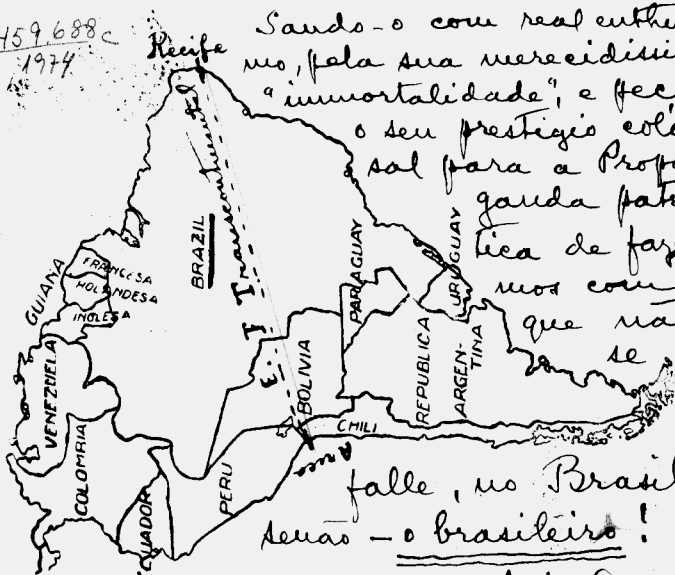 459.688c
1974
Recife
Saudo-o com real enthu
mo, pela sua merecidissi
"immortalidade", e peç
o seu prestigio coló
sal para a Propa
ganda patr
tica de faze
mos com
que nã
se
falle, no Brasil
senão - o brasileiro!
E. F. Transcontinental
BRAZIL
GUIANA
FRANCESA
HOLANDESA
INGLESA
VENEZUELA
COLOMBIA
QUADOR
PERU
BOLIVIA
PARAGUAY
URUGUAY
REPUBLICA
ARGEN-
TINA
CHILI
Arica